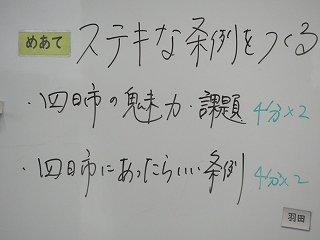 めあて ステキな条例をつくる
・四日市の魅力・課題 4分×2
・四日市にあったらいい条例 4分×2
羽田